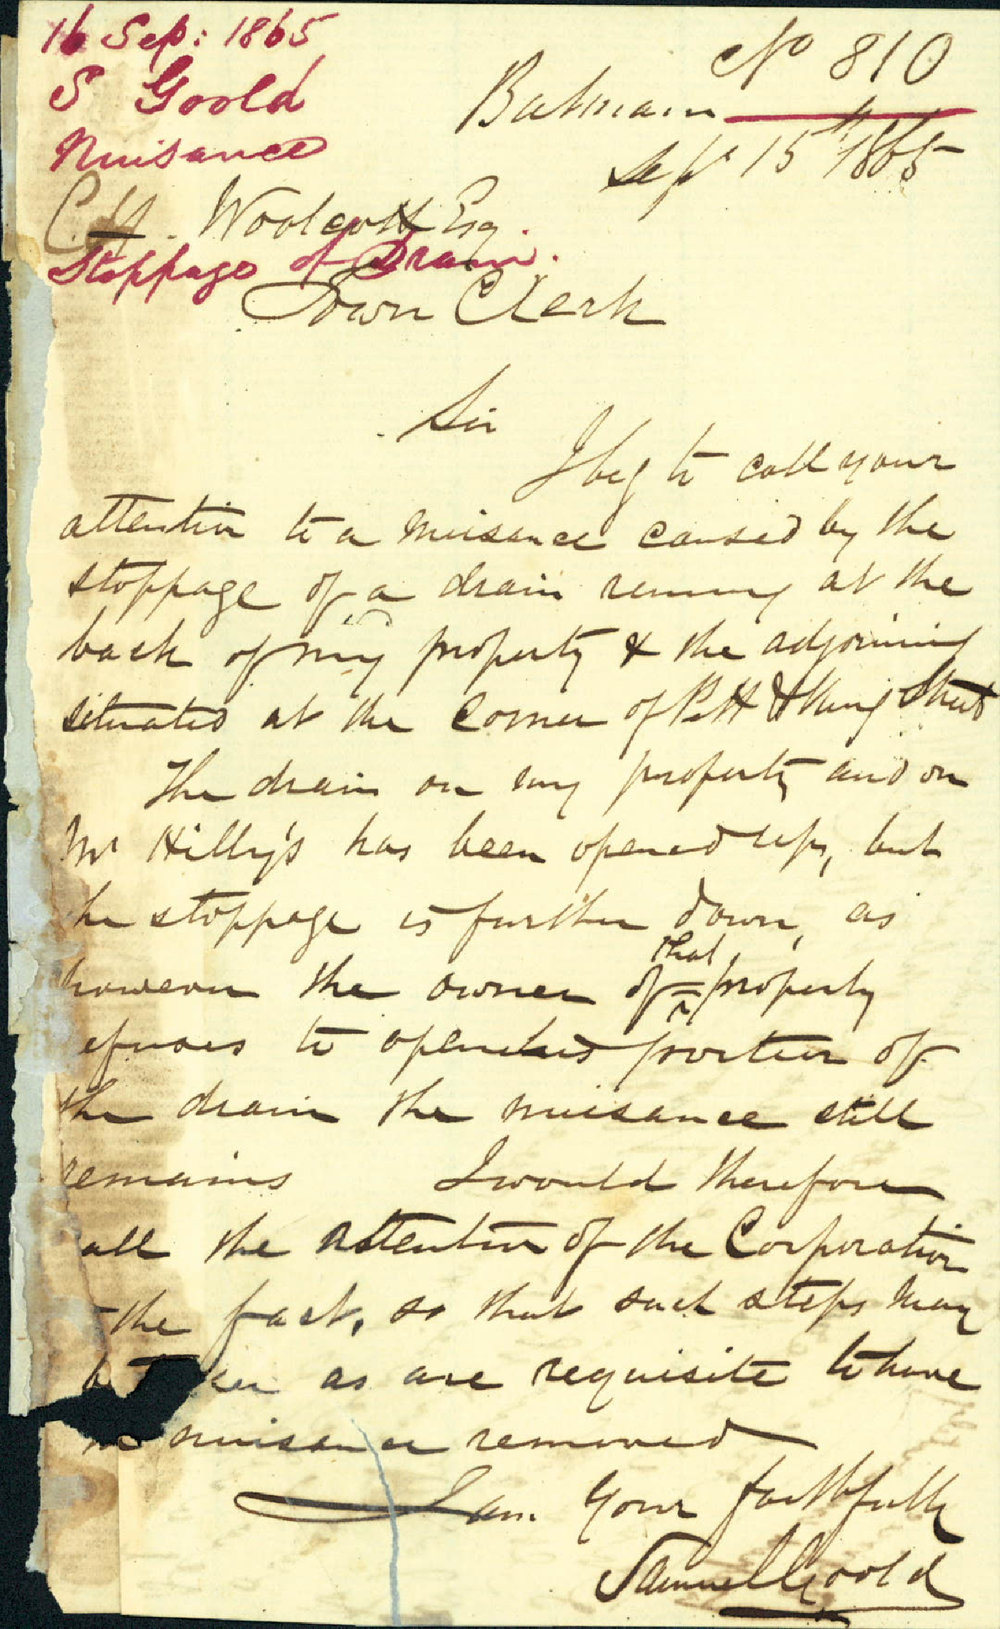 16 Sep: 1865
S Goold
Nuisance
Stoppage of Drain.
No 810
Balmain
Sept 15th 1865
C.H. Woolcott Esq
Town Clerk
Sir
I beg to call your
attention to a nuisance caused by the
stoppage of a drain running at the
back of my property & the adjoining
situated at the corner of Pitt & King Streets
The drain on my property and on
Mr Hilly's has been opened up, but
he stoppage is further down, as
however the owner of that property
efuses to open his portion of
the drain the nuisance still
remains I would therefore
all the attention of the Corporation
the fact, so that such steps may
as are requisite to have
nuisance removed
I am Your faithfully
Samuel Goold